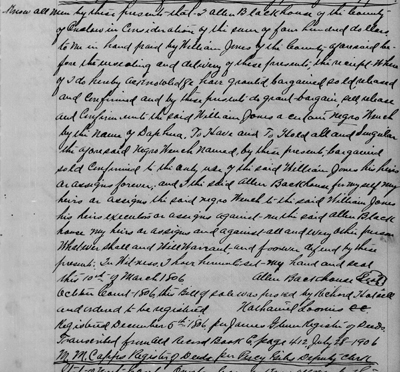 Know all men by these presents that I Allen Blackhouse of the County
of Onslow in Consideration of the sum of four hundred dollars
to me in hand paid by William Jones of the County aforesaid be-
fore the unsealing and delivery of these presents, the receipt Where
of I do hereby acknowledge have granted bargained sold released
and Confirmed and by these presents do grant bargain sell release
and Confirm unto the said William Jones a certain Negro Wench
by the Name of Daphna, To Have and To Hold all and singular
the aforesaid Negro Wench Named, by these presents, bargained
sold Confirmed to the only use of the said William Jones his heirs
or assigns forever, and I the said Allen Backhouse for myself my
heirs or assigns the said negro Wench to the said William Jones
his heirs executors or assigns against me the said Allen Black
house my heirs or assigns and against all and every other person
Whatever shall and Will Warrant and forever defend by these
presents. In Witness, I have hereunto set my hand and seal
this 10th of March 1806 Allen Backhouse Seal
October Court 1806, this Bill of sale was proved by Richard
and Ordered to be registered Nathaniel Loomis CC
Registered December 5th 1806 per James Register of Deeds
Transcribed from old Record Book page 412, July 28 1906
M. M. Capps Register of Deeds per Deputy clerk